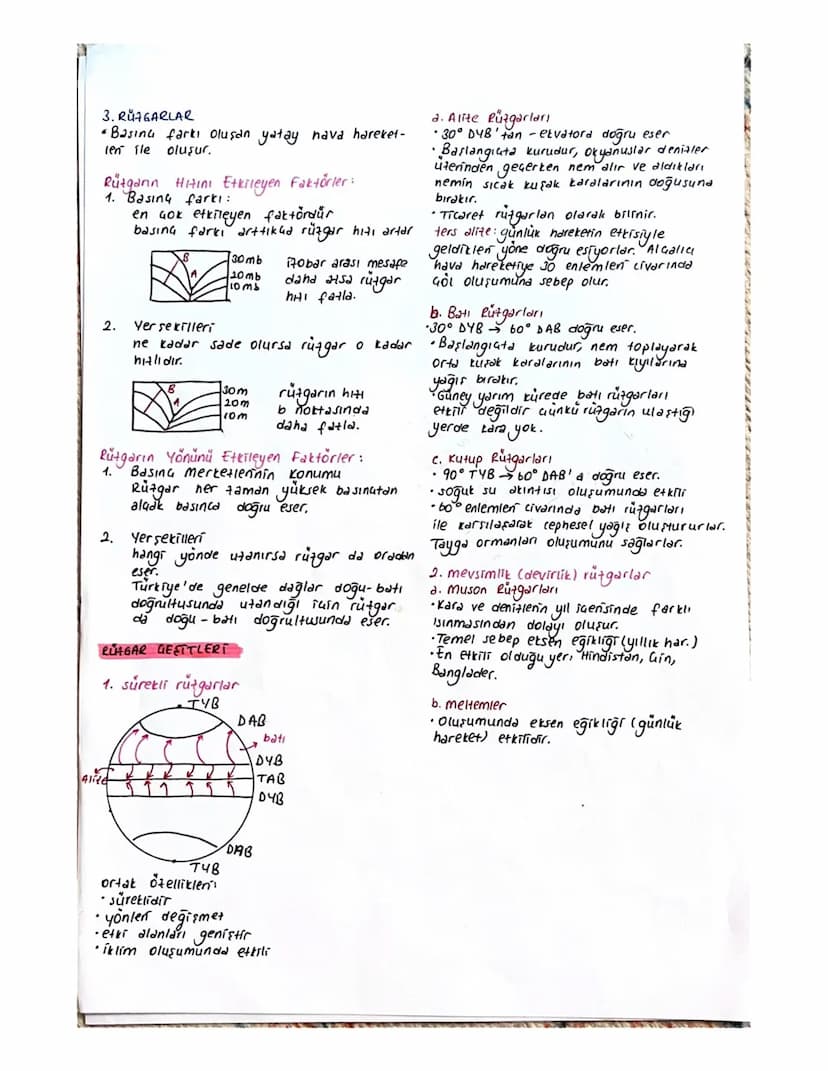 3. RÜZGARLAR
• Basınç farkı oluşan yatay hava hareket-
leri ile oluşur.
Rüzgarın Hızını Etkileyen Faktörler:
1. Basınç farkı:
en çok etkileyen faktördür
basınç farkı arttıkça rüzgar hızı artar
B
A
30mb
20mb
10mb
izobar arası mesafe
daha azsa rüzgar
hızı fazla.
2. Yerşekilleri
ne kadar sade olursa rüzgar o kadar
hızlıdır.
B
A
30m
20m
10m
rüzgarın hızı
b noktasında
daha fazla.
Rüzgarın Yönünü Etkileyen Faktörler:
1. Basınç Merkezlerinin Konumu
Rüzgar her zaman yüksek basınçtan
alçak basınca doğru eser.
2. Yerşekilleri
hangi yönde uzanırsa rüzgar da oradan
eser.
Türkiye'de genelde dağlar doğu-batı
doğrultusunda uzandığı için rüzgar
da doğu-batı doğrultusunda eser.
RÜZGAR ÇEŞİTLERİ
1. sürekli rüzgarlar
TYB
DAB
batı
DYB
Alize
TAB
DYB
DAB
TYB
ortak özellikleri:
• süreklidir
• yönleri değişmez
• etki alanları geniştir
• iklim oluşumunda etkili
a. Alize Rüzgarları
• 30° DYB'tan - ekvatora doğru eser
• Başlangıçta kurudur, okyanuslar denizler
üzerinden geçerken nem alır ve aldıkları
nemin sıcak kuşak karalarının doğusuna
bırakır.
• Ticaret rüzgarları olarak bilinir.
ters alize: günlük hareketin etkisiyle
geldikleri yöne doğru esiyorlar. Alçalıcı
hava hareketiye 30 enlemleri civarında
çöl oluşumuna sebep olur.
b. Batı Rüzgarları
• 30° DYB → 60° DAB doğru eser.
• Başlangıçta kurudur, nem toplayarak
orta kuşak karalarının batı kıyılarına
yağış bırakır.
• Güney yarım kürede batı rüzgarları
etkili değildir çünkü rüzgarın ulaştığı
yerde kara yok.
c. Kutup Rüzgarları
• 90° TYB → 60° DAB'a doğru eser.
• soğuk su akıntısı oluşumunda etkili
• 60° enlemleri civarında batı rüzgarları
ile karşılaşarak cephesel yağış oluştururlar.
Tayga ormanları oluşumunu sağlarlar.
2. mevsimlik (devirlik) rüzgarlar
a. Muson Rüzgarları
• Kara ve denizlerin yıl içerisinde farklı
ısınmasından dolayı oluşur.
• Temel sebep eksen eğikliği (yıllık har.)
• En etkili olduğu yer: Hindistan, Çin,
Bangladeş.
b. meltemler
• Oluşumunda eksen eğikliği (günlük
hareket) etkilidir.